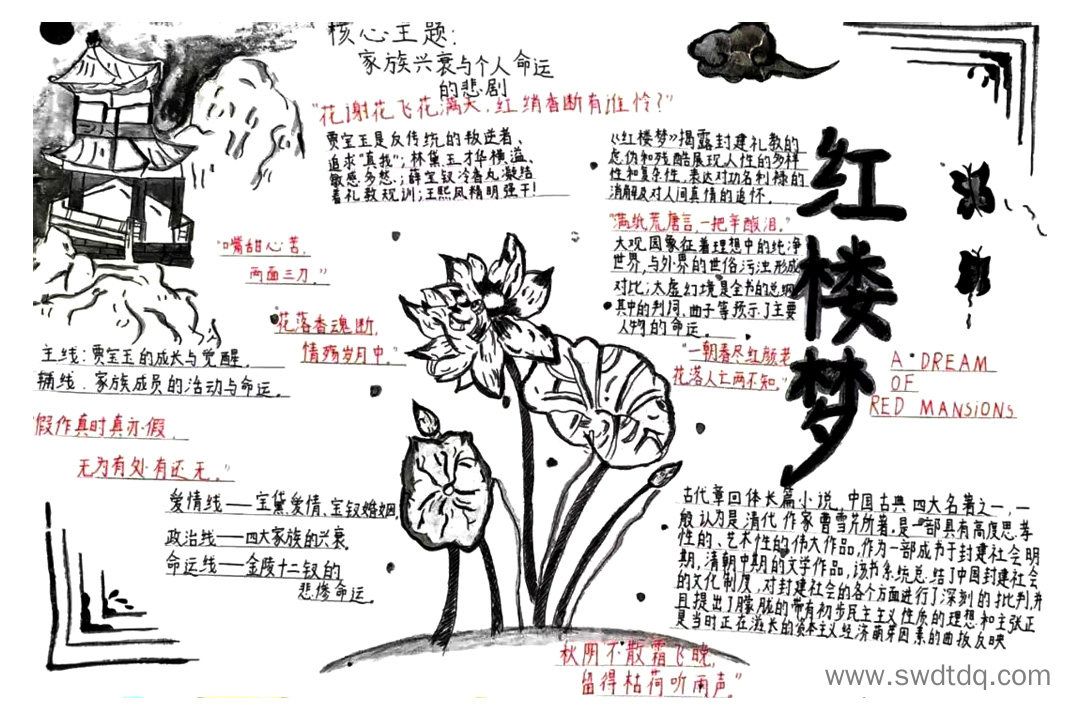 核心主题:
家族兴衰与个人命运
的悲剧
"花谢花飞花满天,红绡香断有谁怜?"
贾宝玉是反传统的叛逆者、
追求"真我";林黛玉才华横溢、
敏感多愁、;薛宝钗冷香丸凝结
着礼教规训;王熙凤精明强干!
《红楼梦》揭露封建礼教的
虚伪和残酷展现人性的多样
性和复杂性,表达对功名利禄的
消解及对人间真情的追怀.
"满纸荒唐言,一把辛酸泪."
大观园象征着理想中的纯净
世界,与外界的世俗污浊形成
对比;太虚幻境是全书的总纲
其中的判词、曲子等预示了主要
人物的命运.
"一朝春尽红颜老
花落人亡两不知."
红楼梦
A DREAM
OF
RED MANSIONS
"嘴甜心苦,
两面三刀."
"花落香魂断,
情殇岁月中."
主线:贾宝玉的成长与觉醒.
辅线:家族成员的活动与命运.
"假作真时真亦假,
无为有处有还无."
爱情线——宝黛爱情、宝钗婚姻
政治线——四大家族的兴衰
命运线——金陵十二钗的
悲惨命运.
古代章回体长篇小说,中国古典四大名著之一,一
般认为是清代作家曹雪芹所著.是一部具有高度思想
性的、艺术性的伟大作品,作为一部成书于封建社会明
期,清朝中期的文学作品,该书系统总结了中国封建社会
的文化制度,对封建社会的各个方面进行了深刻的批判,并
且提出了朦胧的带有初步民主主义性质的理想和主张正
是当时正在滋长的资本主义经济萌芽因素的曲折反映
秋阴不散霜飞晚,
留得枯荷听雨声."
www.swdtdq.com